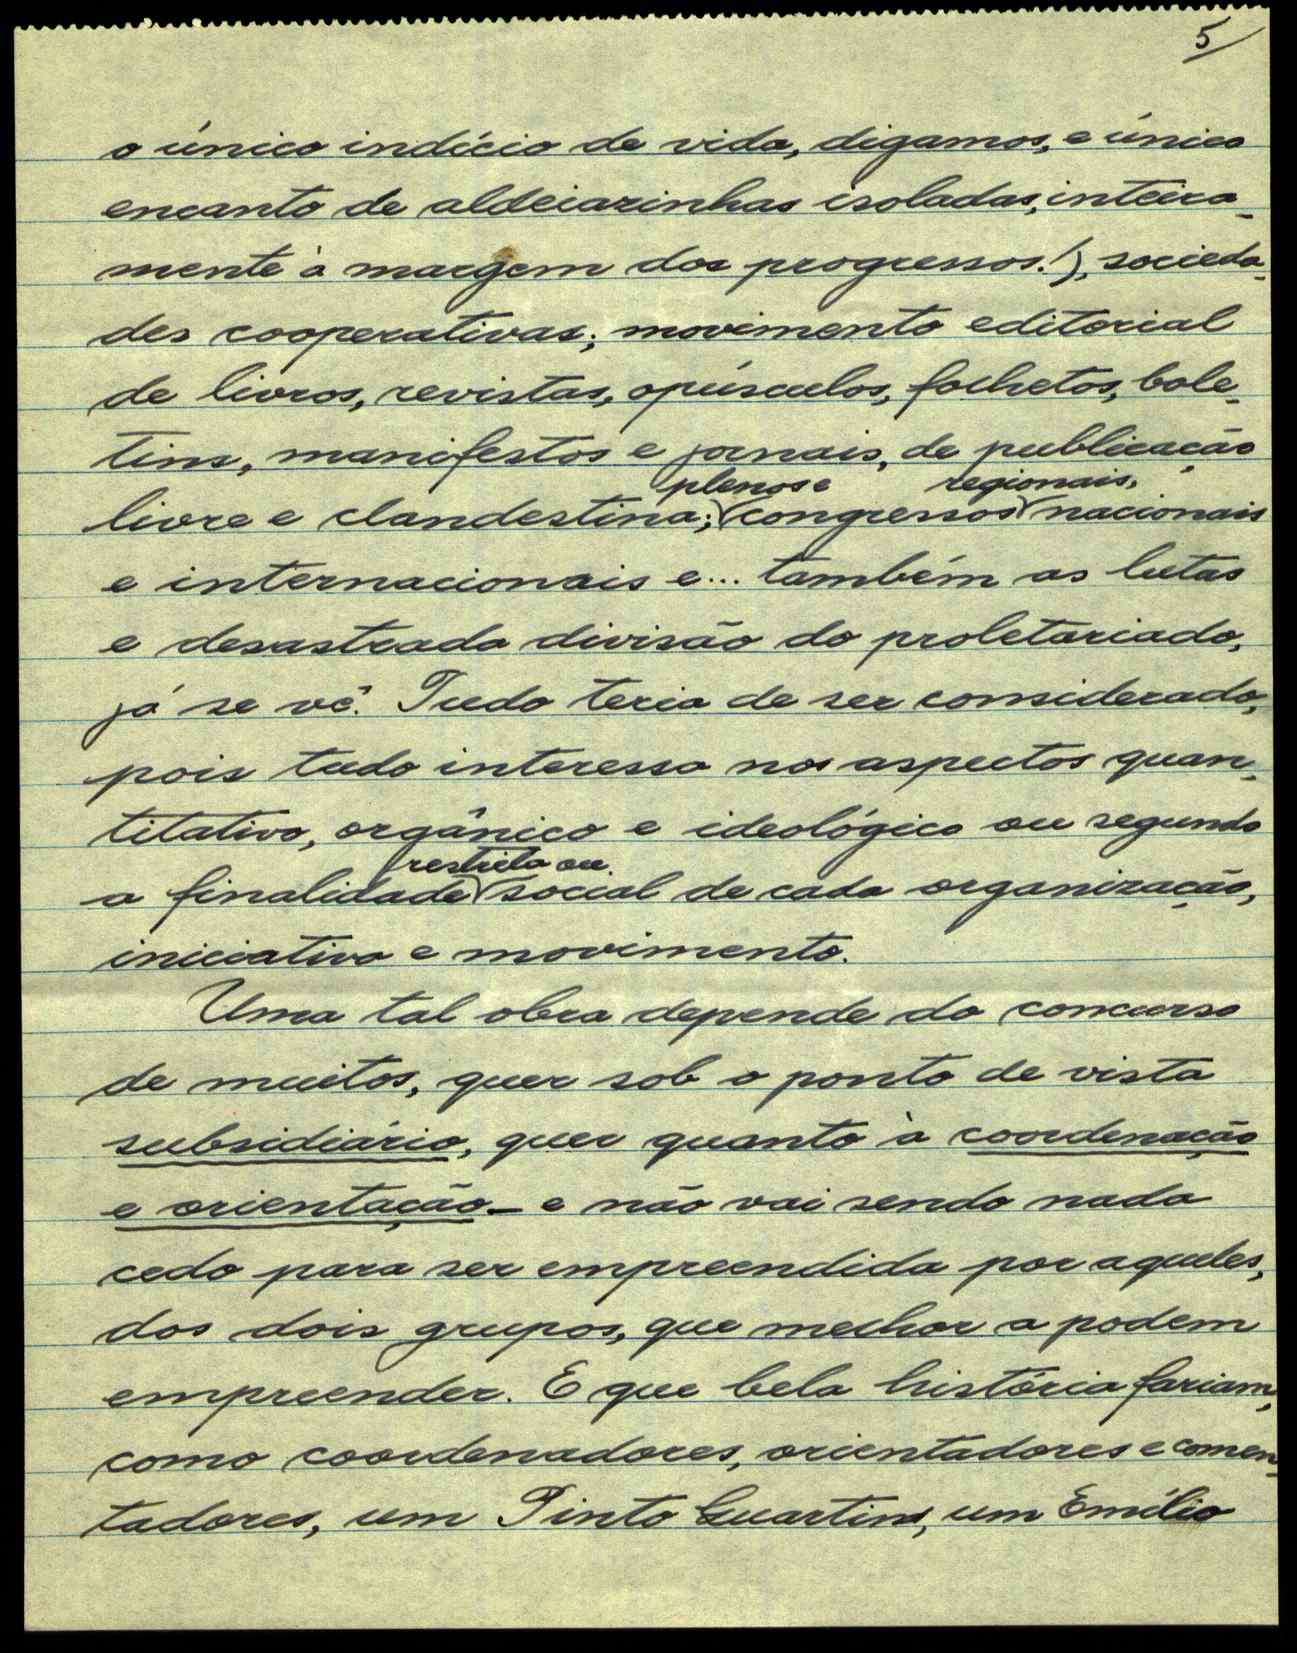 5
o único indício de vida, digamos, e único
encanto de aldeiazinhas isoladas, inteira-
mente à margem dos progressos!), socieda-
des cooperativas; movimento editorial
de livros, revistas, opúsculos, folhetos, bole-
tins, manifestos e jornais, de publicação
plenos e regionais,
livre e clandestina; congressos nacionais
e internacionais e... também as lutas
e desastrada divisão do proletariado,
já se vê. Tudo teria de ser considerado,
pois tudo interessa nos aspectos quan-
titativo, orgânico e ideológico ou segundo
restrita ou
a finalidade social de cada organização,
iniciativa e movimento.
Uma tal obra depende do concurso
de muitos, quer sob o ponto de vista
subsidiário, quer quanto à coordenação
e orientação - e não vai sendo nada
cedo para ser empreendida por aqueles,
dos dois grupos, que melhor a podem
empreender. E que bela história fariam,
como coordenadores, orientadores e comen-
tadores, um Pinto Quartim, um Emílio